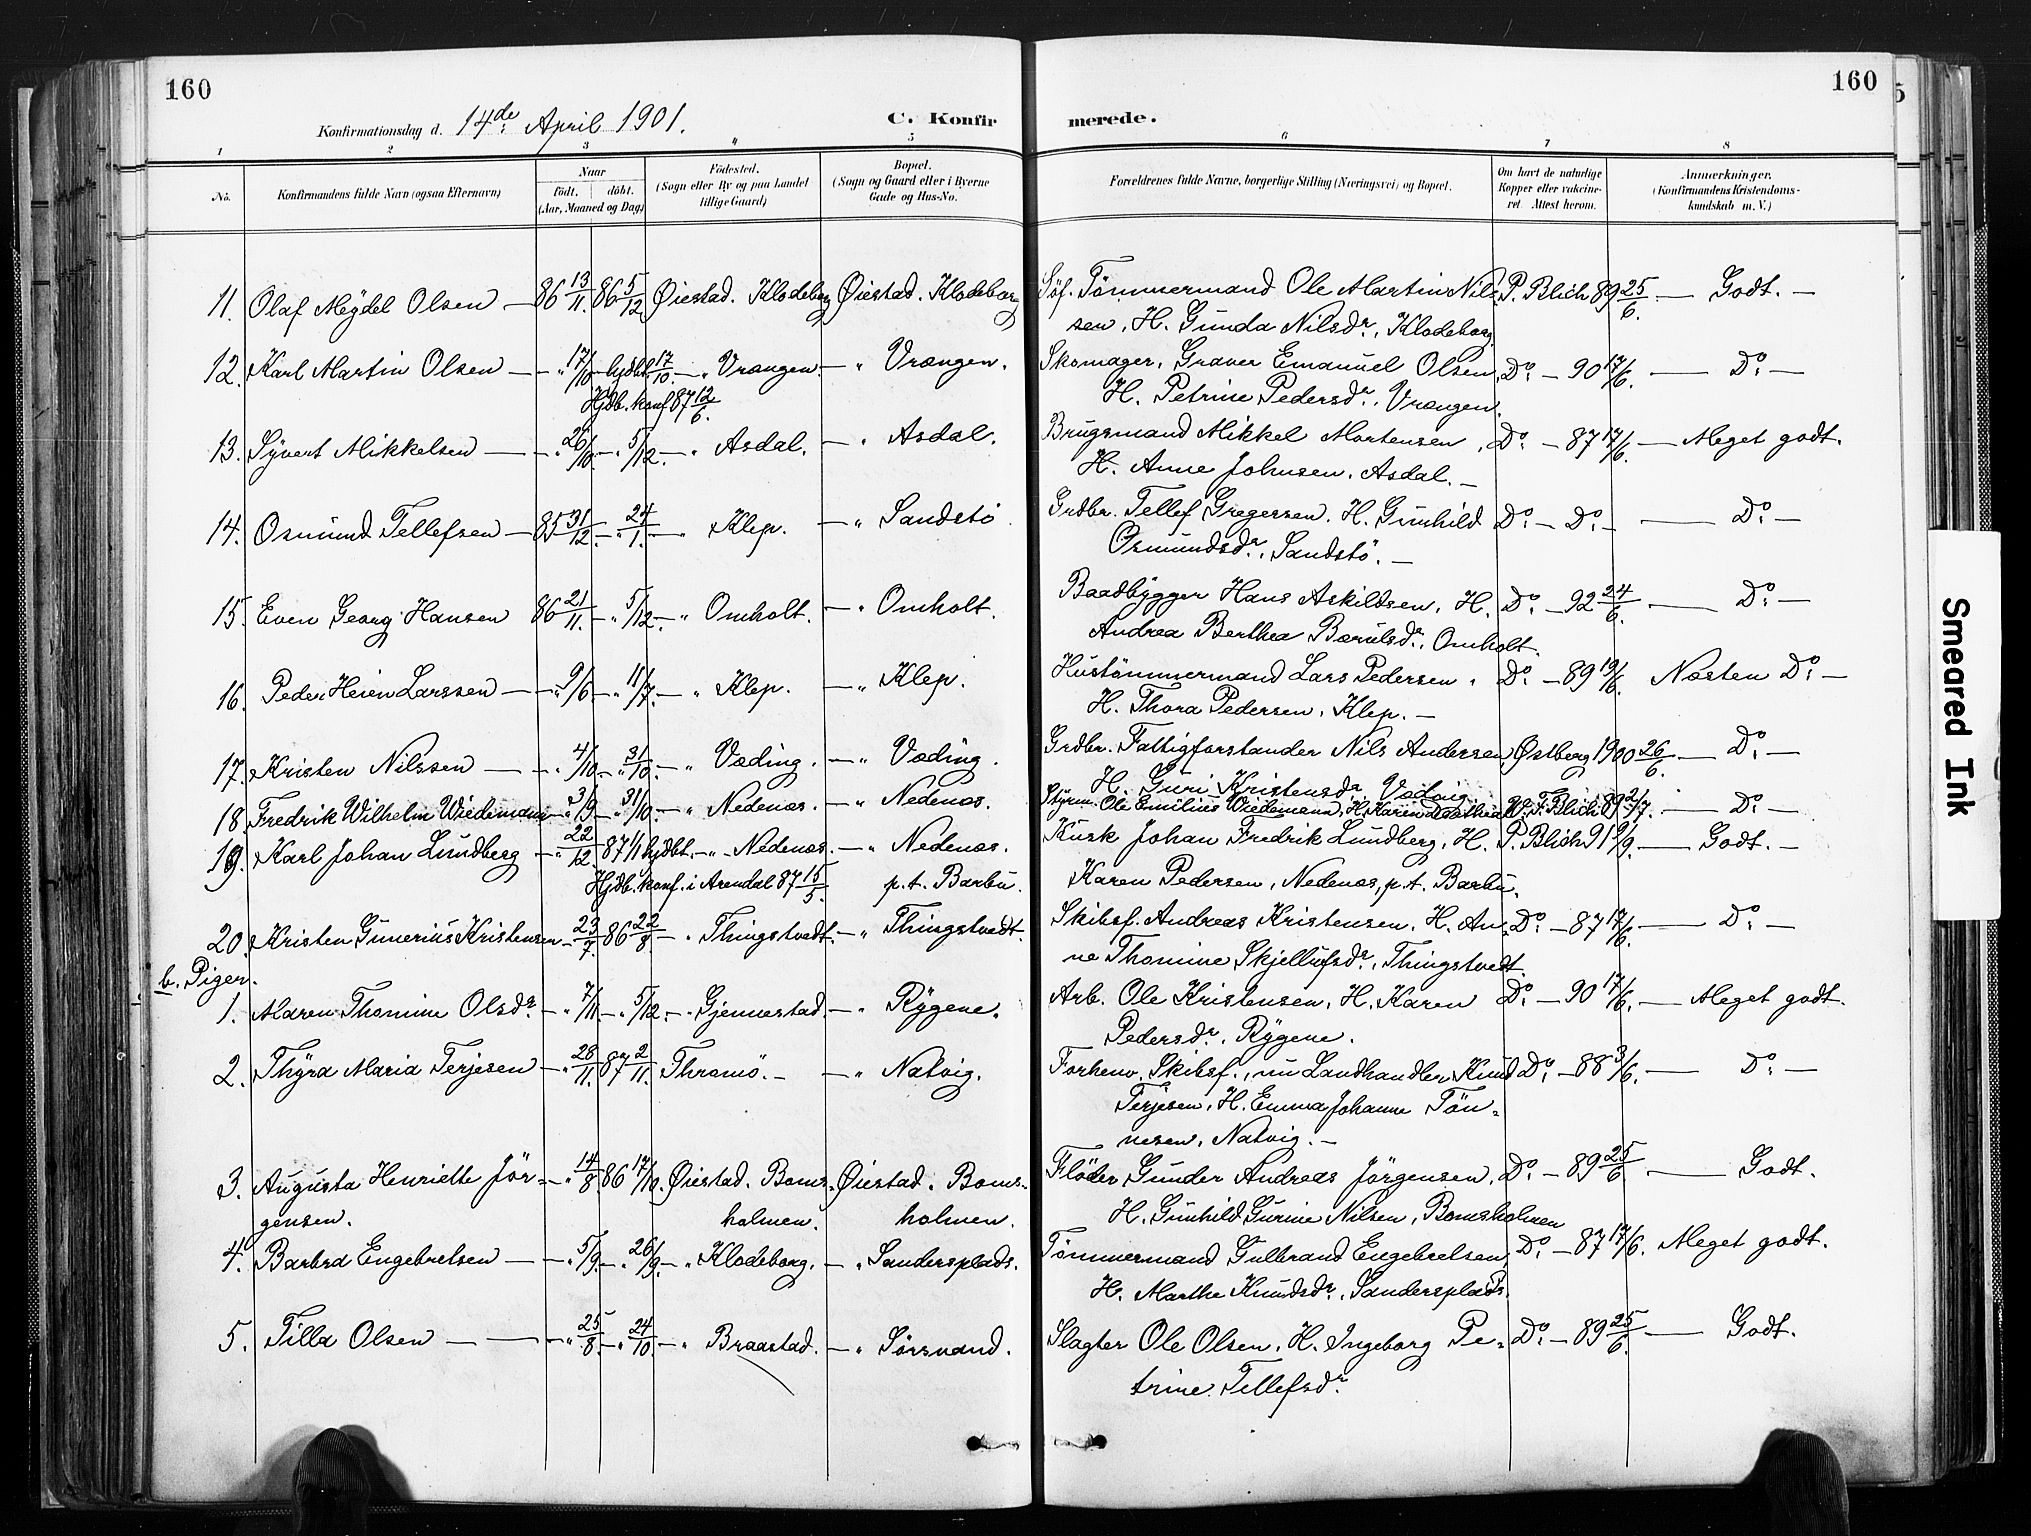 160
160
5
Konfirmationsdag d. 14de April 1901.
C. Konfirmerede.
1 2 3 4 5 6 7 8
No.
Konfirmandens fulde Navn (ogsaa Efternavn)
Naar
født. døbt.
(Aar, Maaned og Dag)
Fødested.
(Sogn eller By og paa Landet
tillige Gaard)
Bopæl.
(Sogn og Gaard eller i Byerne
Gade og Hus-No.
Forældrenes fulde Navne, borgerlige Stilling (Næringsvei) og Bopæl.
Om havt de naturlige
Kopper eller vakcine-
ret. Attest herom.
Anmærkninger.
(Konfirmandens Kristendoms-
kundskab m. V.)
11. Olaf Mÿdel Olsen — 86 13/11. 86 5/12 Øiestad. Klodeborg Øiestad. Klodeborg Søf. Tømmermand Ole Martin Nils- P. Blich 89 25/6. — Godt. —
sen, H. Gunda Nilsdr., Klodeborg
12. Karl Martin Olsen — — " 17/10 — hjdbt. 17/10. — " Vrængen. — " Vrængen. Skomager, Graver Emanuel Olsen, Do. — 90 17/6. — Do. —
Hjdb. konf. 87 12/6. H. Petrine Pedersdr., Vrængen.
13. Syvert Mikkelsen — — " 26/10. — " 5/12. — " Asdal. — " Asdal. Brugsmand Mikkel Mortensen, Do. — 87 17/6. — Meget godt.
H. Anne Johnsen, Asdal. —
14. Osmund Tellefsen — 85 31/12. — " 24/1. — " Klep. — " Sandstø. Grdbr. Tellef Gregersen, H. Gunhild Do. — Do. — — Do. —
Osmundsdr., Sandstø. —
15. Even Georg Hansen 86 21/11. — " 5/12. — " Omholt. — " Omholt. Baadbygger Hans Askildsen, H. Do. — 92 24/6. — Do. —
Andrea Berthea Bærulsdr., Omholt.
16. Peder Heien Larssen — — " 9/6. — " 11/7. — " Klep. — " Klep. Hustømmermand Lars Pedersen, Do. — 89 19/6. Næsten Do. —
H. Thora Pedersen, Klep. —
17. Kristen Nilssen — — " 4/10. — " 31/10. — " Væding. — " Væding. Grdbr. Fattigforstander Nils Andersen, Østberg 1900 26/6. — Do. —
H. Guri Kristensdr.
18. Fredrik Wilhelm Wiedemann — " 3/9. — " 31/10. — " Nedenæs. — " Nedenæs. Styrm. Ole Emilius Wiedemann, H. Karen Dorthea W. F. Blich 89 2/7. — Do. —
19. Karl Johan Lundberg — " 22/12. 87 1/1 hjdbt. — " — Nedenæs. — " Nedenæs. Kusk Johan Fredrik Lundberg, H. P. Blich 91 9/9. — Godt. —
Hjdb. konf. i Arendal 87 15/5. p. t. Barbu. Karen Pedersen, Nedenæs, p. t. Barbu.
20. Kristen Gunerius Kristensen — " 23/7. 86 22/8. — " Thingstvedt. — " Thingstvedt. Skibsf. Andreas Kristensen, H. An- Do. — 87 17/6. — Do. —
ne Thomine Skjellufsdr., Thingstvedt.
b. Piger.
1. Maren Thomine Olsdr. — " 7/11. — " 5/12. — " Gjennestad. — " Rÿgene. Arb. Ole Kristensen, H. Karen Do. — 90 17/6. — Meget godt.
Pedersdr., Rÿgene.
2. Thÿra Maria Terjesen — " 28/11. 87 2/11. Thromø. — — " Natvig. Forhenv. Skibsf., nu Landhandler Knud Do. — 88 3/6. — Do. —
Terjesen, H. Emma Johanne Tøn-
nesen, Natvig. —
3. Augusta Henriette Jør- — " 14/8. 86 17/10. Øiestad. Boms- Øiestad. Boms- Fløder Gunder Andreas Jørgensen, Do. — 89 25/6. — Godt.
gensen. holmen. holmen. H. Gunhild Gurine Nilsen, Bomsholmen
4. Barbra Engebretsen — — " 5/9. — " 26/9. — " Klodeborg. — " Sandersplads. Tømmermand Gulbrand Engebretsen, Do. — 87 17/6. Meget godt.
H. Marthe Knudsdr., Sandersplads.
5. Tilla Olsen — — " 25/8. — " 24/10. — " Braastad. — " Sørsvand. Slagter Ole Olsen, H. Ingeborg Pe- Do. — 89 25/6. — Godt.
trine Tellefsdr.
Smeared Ink